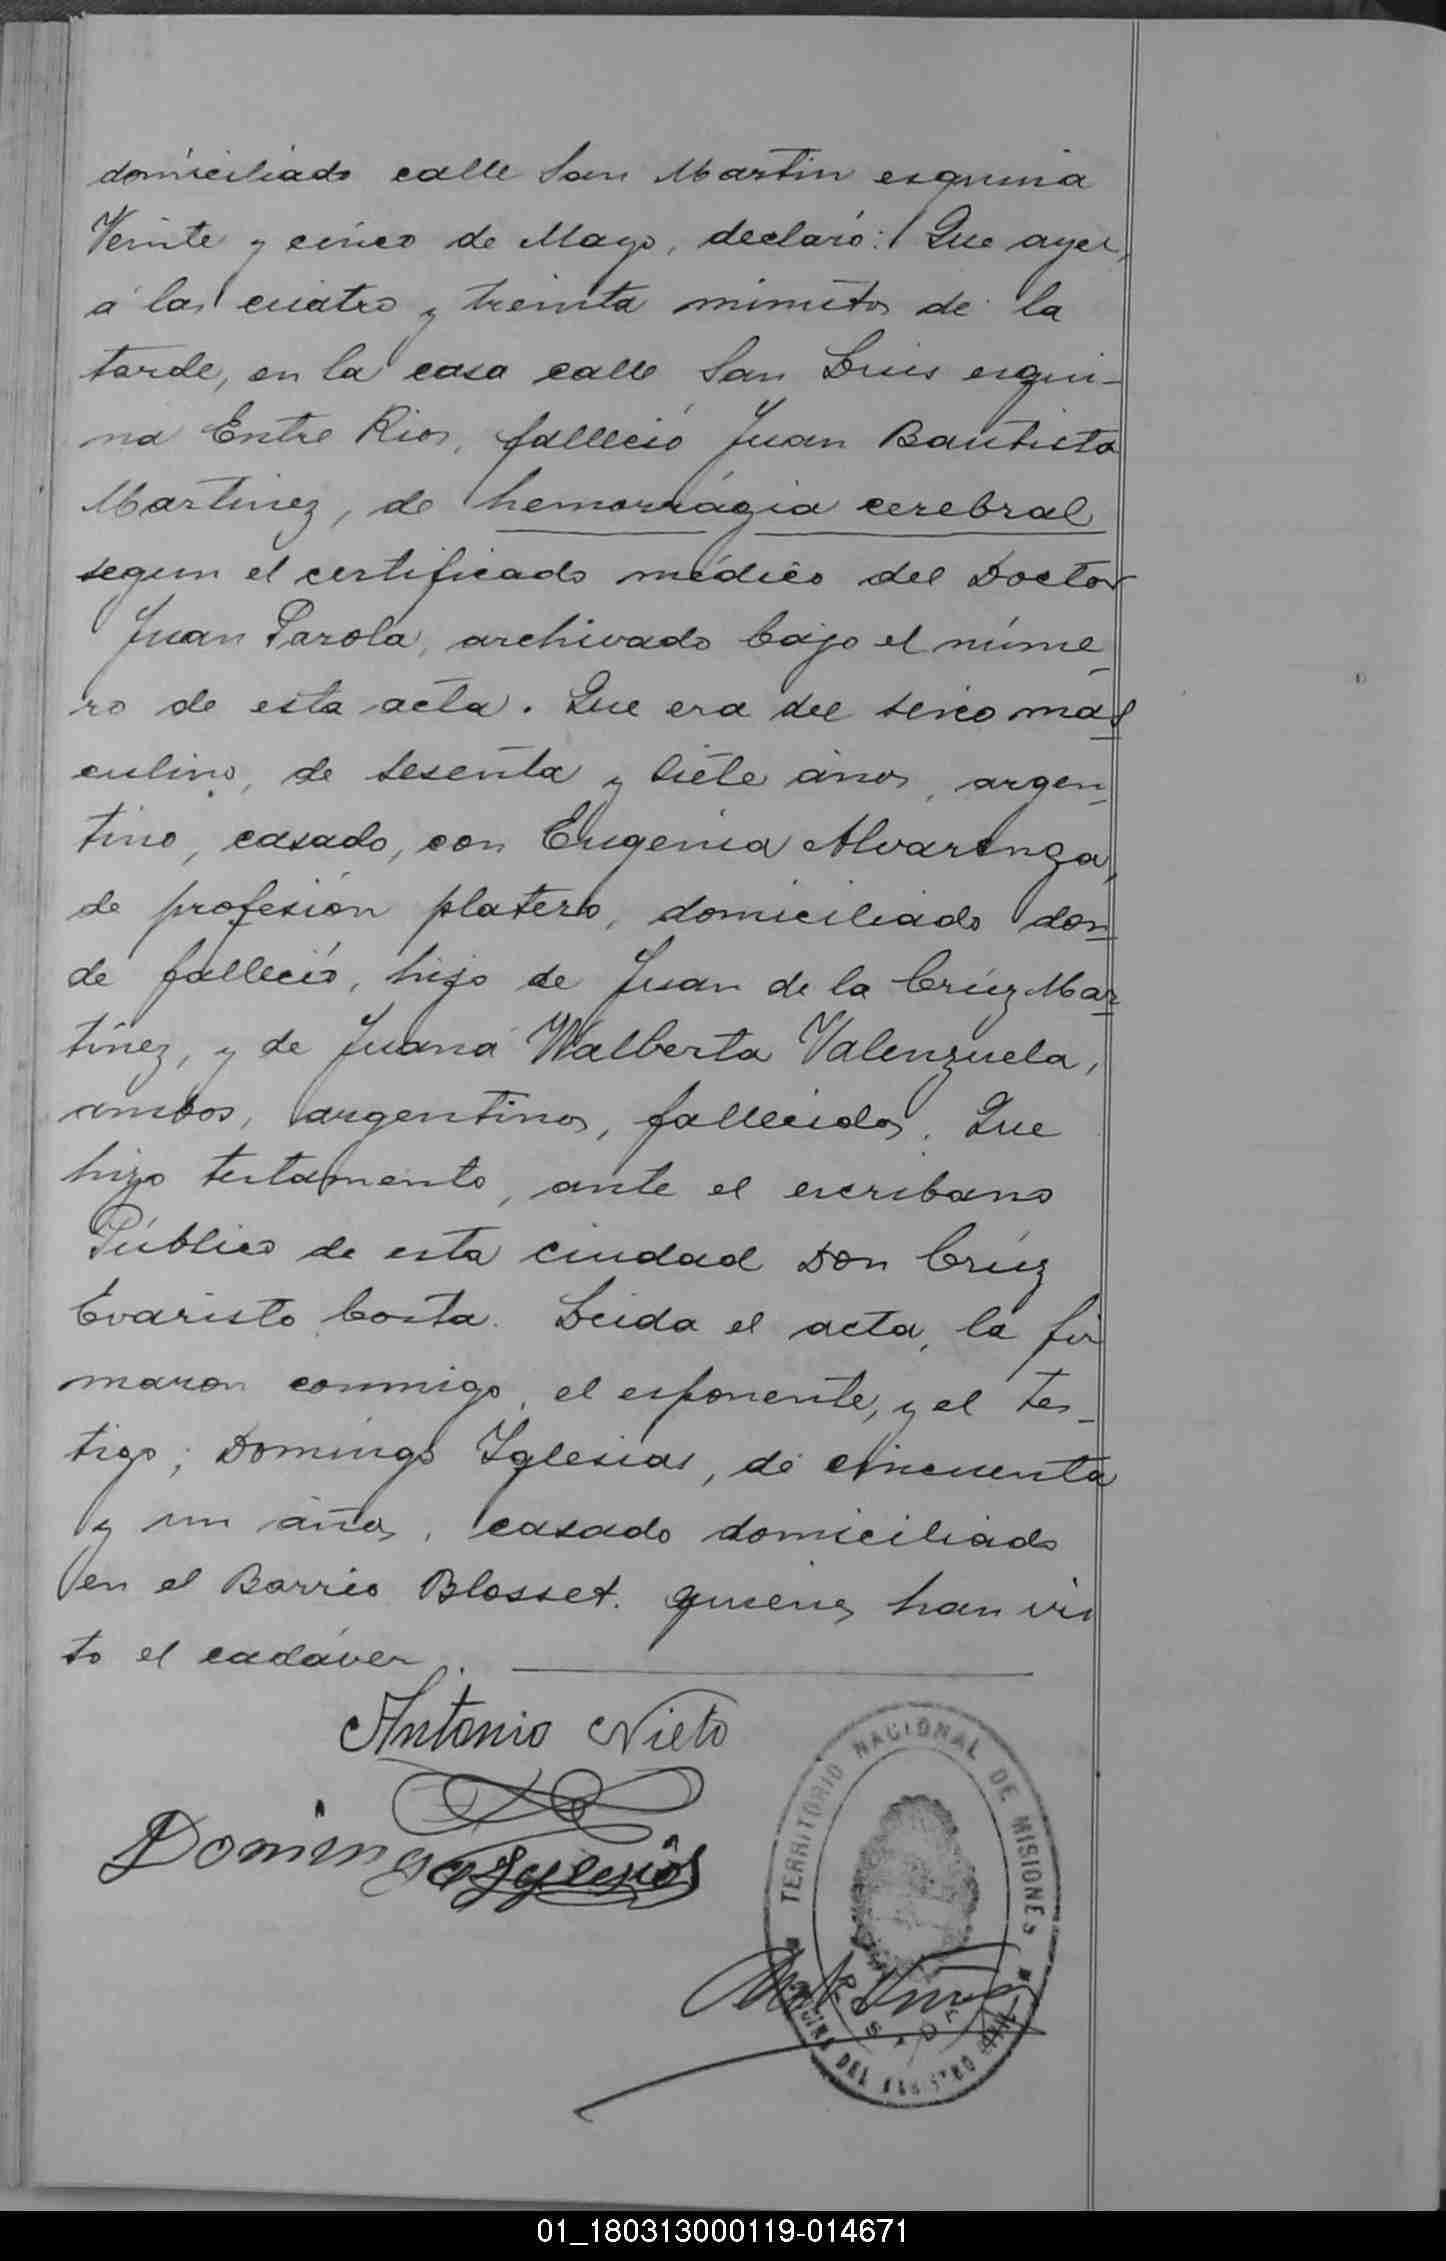 domiciliado calle San Martin esquina
Veinte y cinco de Mayo, declaró: Que ayer,
á las cuatro y treinta minutos de la
tarde, en la casa calle San Luis esqui-
na Entre Rios, falleció Juan Bautista
Martinez, de hemorrágia cerebral
segun el certificado médico del Doctor
Juan Parola, archivado bajo el núme-
ro de esta acta. Que era del sexo mas-
culino, de sesenta y siete años, argen-
tino, casado, con Eugenia Alvarenga,
de profesión platero, domiciliado don-
de falleció, hijo de Juan de la Crúz Mar-
tínez, y de Juana Walberta Valenzuela,
ambos, argentinos, fallecidos. Que
hizo testamento, ante el escribano
Público de esta ciudad Don Crúz
Evaristo Costa. Leida el acta, la fir
maron conmigo, el esponente, y el tes-
tigo; Domingo Yglesias, de cincuenta
y un años, casado domiciliado
en el Barrio Blosset. quienes han vis
to el cadáver.
Antonio Nieto
Domingo Yglesias
TERRITORIO NACIONAL DE MISIONES
POSADAS
OFICINA DEL REGISTRO CIVIL
01_180313000119-014671